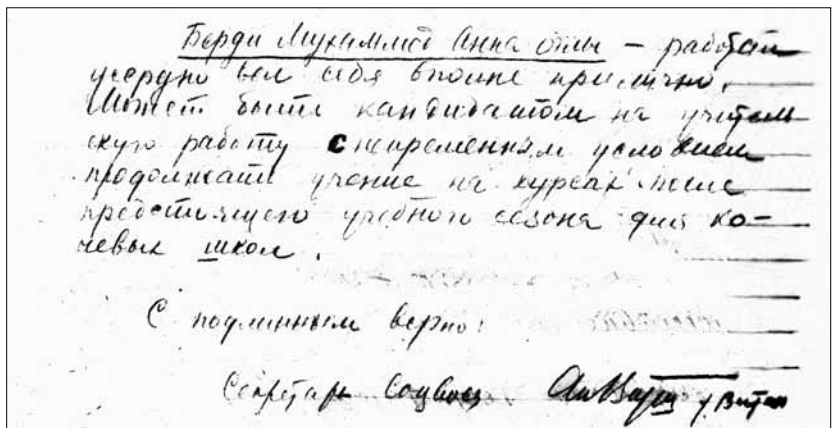 Берди Мухаммед Анна оглы — работал
усердно вел себя вполне прилично.
Может быть кандидатом на учитель
скую работу с непременным условием
продолжать учение на курсах после
предстоящего учебного сезона для ко-
чевых школ.
С подлинным верно:
Секретарь Соцвоса